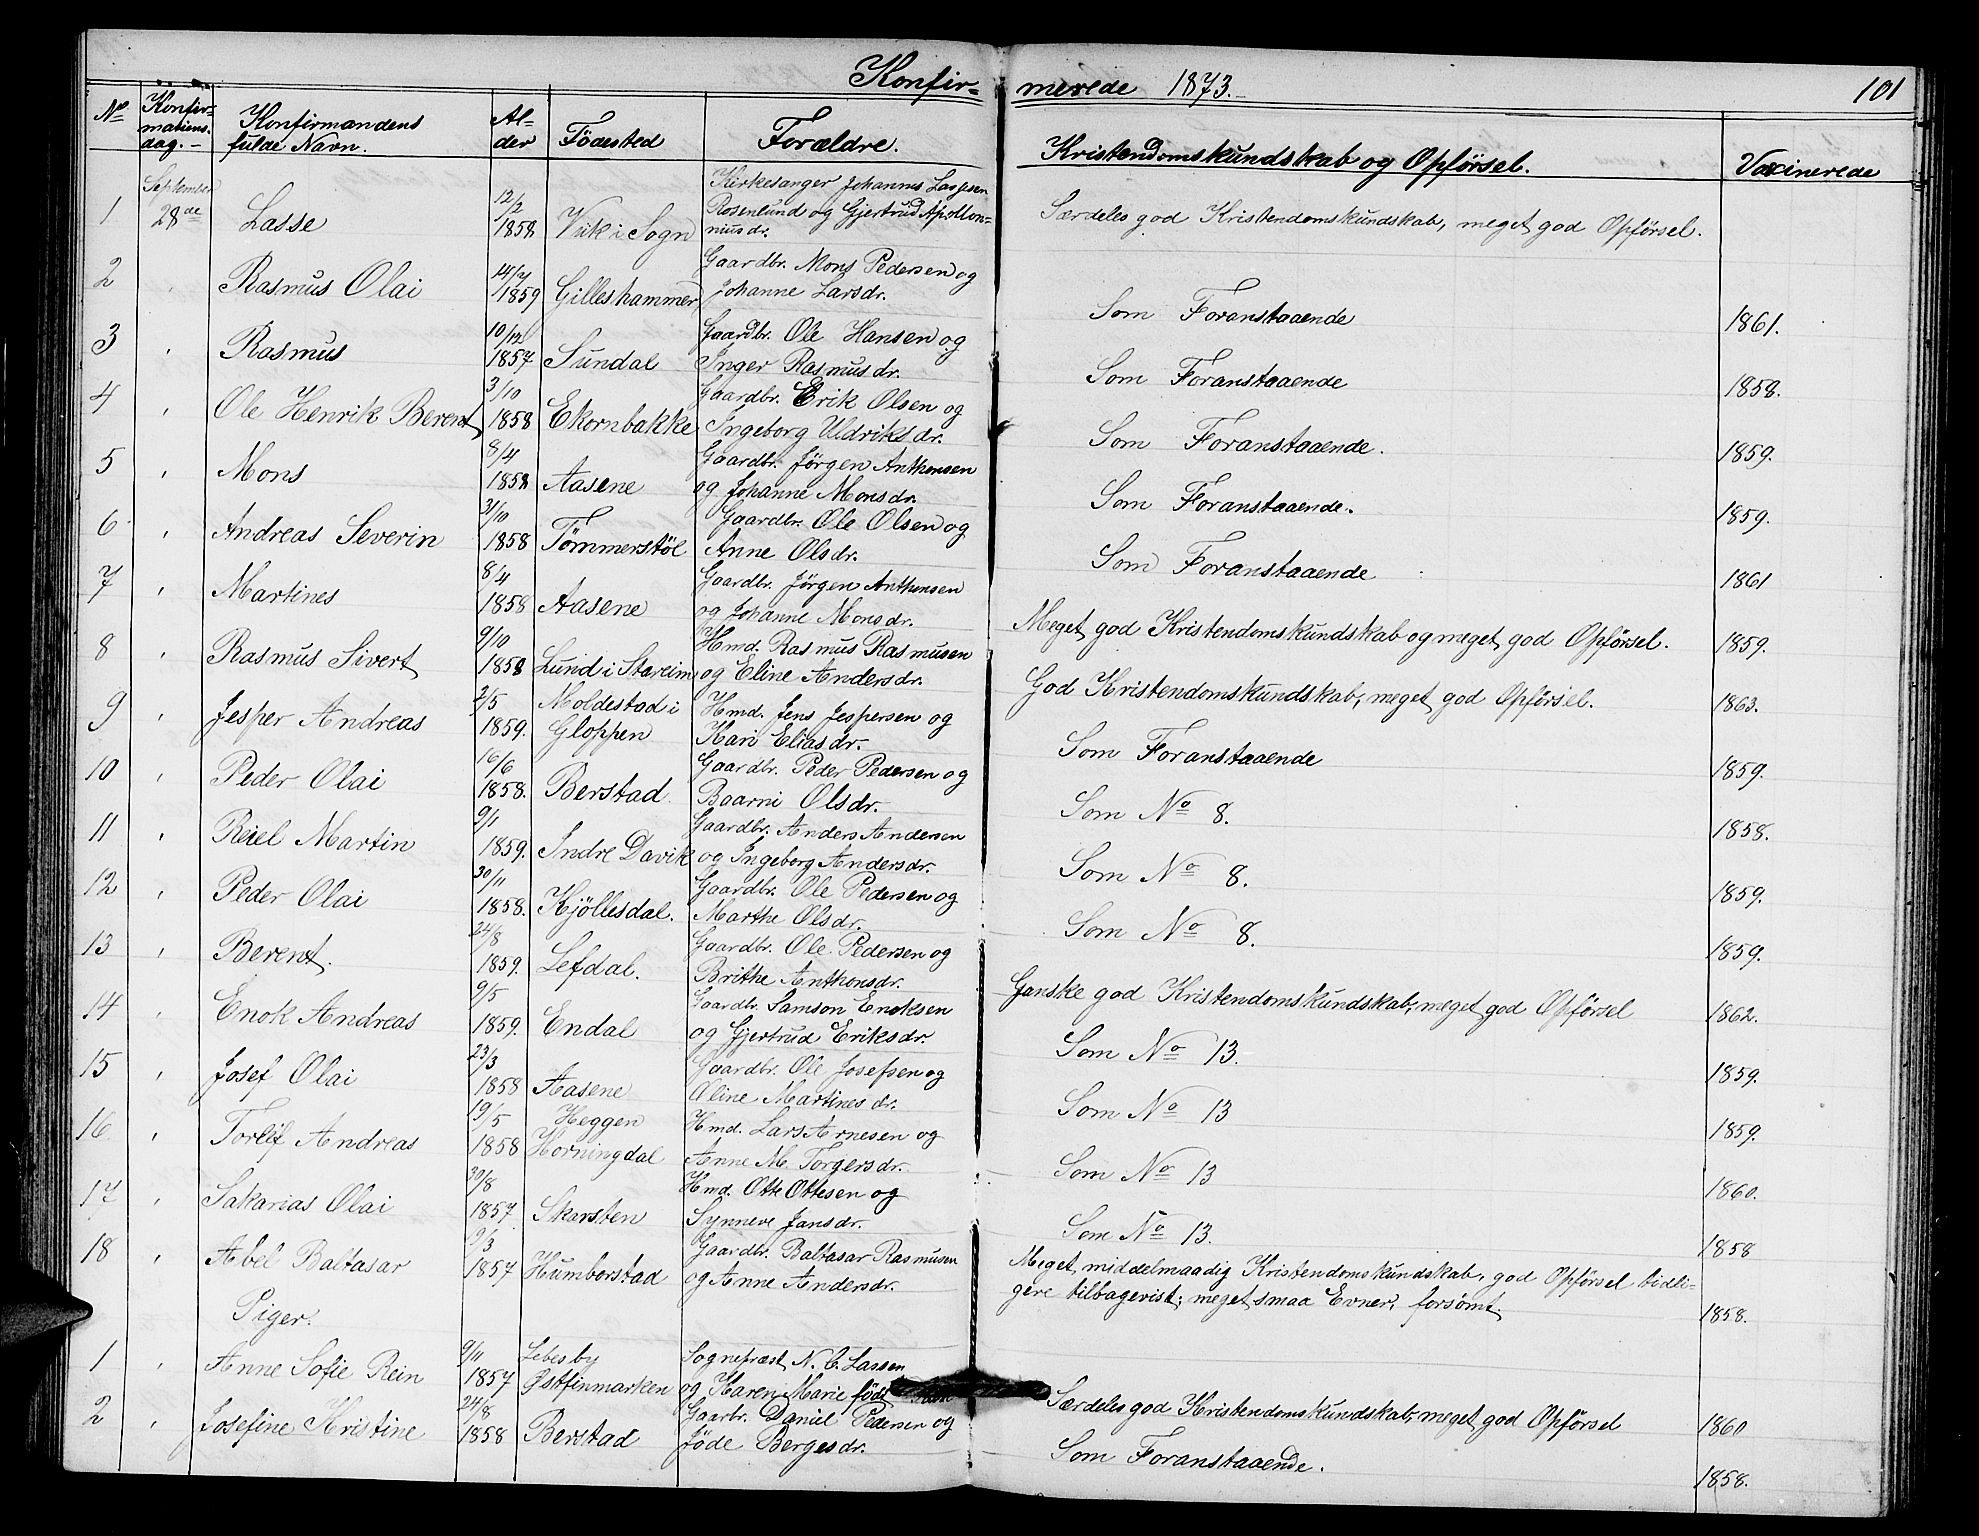 Konfirmerede 1873. 101
No Konfirmations dag. Konfirmandens fulde Navn. Alder Fødested Forældre. Kristendomskundskab og Opførsel. Vaxinerede
September
1 28de Lasse 12/2 1858. Viik i Sogn Kirkesanger Johannes Lassen Rosenlund og Gjertrud Apolloniusdr. Særdeles god Kristendomskundskab, meget god Opförsel.
2 " Rasmus Olai 14/2 1859 Gilleshammer Gaardbr. Mons Pedersen og Johanne Larsdr. Som Foranstaaende 1861.
3 " Rasmus 10/12 1857 Sundal Gaardbr. Ole Hansen og Inger Rasmusdr. Som Foranstaaende 1858.
4 " Ole Henrik Berent 3/10 1858 Ekornbakke Gaardbr. Erik Olsen og Ingeborg Uldriksdr. Som Foranstaaende. 1859.
5 " Mons 8/4 1858 Aasene Gaardbr. Jørgen Anthonsen og Johanne Monsdr. Som Foranstaaende. 1859.
6 " Andreas Severin 31/10 1858 Tömmerstöl Gaardbr. Ole Olsen og Anne Olsdr. Som Foranstaaende 1861
7 " Martines 8/4 1858 Aasene Gaardbr. Jörgen Anthonsen og Johanne Monsdr. Meget god Kristendomskundskab og meget god Opførsel. 1859.
8 " Rasmus Sivert 9/10 1858 Lund i Stareim Hmd. Rasmus Rasmusen og Eline Andersdr. God Kristendomskundskab, meget god Opførsel. 1863.
9 " Jesper Andreas 2/5 1859. Moldestad i Gloppen Hmd. Jens Jespersen og Kari Eliasdr. Som Foranstaaende 1859.
10 " Peder Olai 16/6 1858. Berstad Gaardbr. Peder Pedersen og Baarni Olsdr. Som No 8. 1858.
11 " Reiel Martin 9/1 1859. Indre Davik Gaardbr. Anders Andersen og Ingeborg Andersdr. Som No 8. 1859.
12 " Peder Olai 30/11 1858. Kjöllesdal. Gaardbr. Ole Pedersen og Marthe Olsdr. Som No 8. 1859.
13 " Berent. 24/8 1859. Lefdal. Gaardbr. Ole Pedersen og Brithe Anthonsdr. Ganske god Kristendomskundskab, meget god Opförsel 1862.
14 " Enok Andreas 9/5 1859. Endal Gaardbr. Samson Enoksen og Gjertrud Eriksdr. Som No 13. 1859.
15 " Josef Olai 23/3 1858 Aasene Gaardbr. Ole Josefsen og Oline Martinesdr. Som No 13 1859.
16 " Torlif Andreas 19/5 1858 Heggen Horningdal Hmd. Lars Arnesen og Anne M. Torgersdr. Som No 13 1860.
17 " Sakarias Olai 30/8 1857 Skarsten Hmd. Otte Ottesen og Synneve Jansdr. Som No 13. 1858
18 " Abel Baltasar 9/3 1857 Humborstad Gaardbr. Baltasar Rasmusen og Anne Andersdr. Meget middelmaadig Kristendomskundskab, god Opförsel tidligere tilbagevist; meget smaa Evner, forsömt. 1858.
Piger.
1 " Anne Sofie Rein 9/11 1857 Lebesby Østfinmarken Sognepræst N. C. Lassen og Karen Marie født Særdeles god Kristendomskundskab, meget god Opförsel 1860
2 " Josefine Kristine 24/8 1858 Berstad Gaarbr. Daniel Pedersen og Jöde Bergesdr. Som Foranstaaende. 1858.